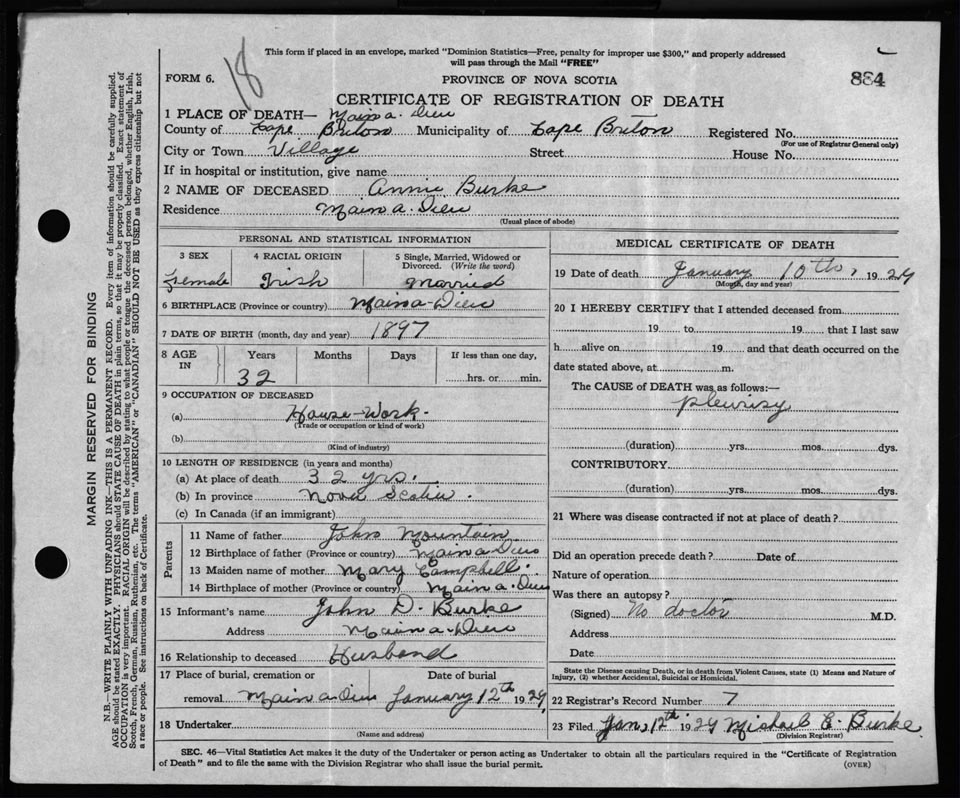 This form if placed in an envelope, marked "Dominion Statistics—Free, penalty for improper use $300," and properly addressed
will pass through the Mail "FREE"
18
FORM 6.
PROVINCE OF NOVA SCOTIA
884
CERTIFICATE OF REGISTRATION OF DEATH
1 PLACE OF DEATH— Main a. Dieu
County of Cape Breton Municipality of Cape Breton Registered No.
(For use of Registrar General only)
City or Town Village Street House No.
If in hospital or institution, give name
2 NAME OF DECEASED Annie Burke
Residence Main a. Dieu
(Usual place of abode)
PERSONAL AND STATISTICAL INFORMATION
3 SEX 4 RACIAL ORIGIN 5 Single, Married, Widowed or
Divorced. (Write the word)
Female Irish Married
6 BIRTHPLACE (Province or country) Main a-Dieu
7 DATE OF BIRTH (month, day and year) 1897
8 AGE IN Years Months Days If less than one day,
32 hrs. or min.
9 OCCUPATION OF DECEASED
(a) House-Work.
(Trade or occupation or kind of work)
(b)
(Kind of industry)
10 LENGTH OF RESIDENCE (in years and months)
(a) At place of death 32 yrs.
(b) In province Nova Scotia.
(c) In Canada (if an immigrant)
Parents
11 Name of father John Mountain
12 Birthplace of father (Province or country) Main a Dieu
13 Maiden name of mother Mary Campbell.
14 Birthplace of mother (Province or country) Main a. Dieu
15 Informant's name John D. Burke
Address Main a-Dieu
16 Relationship to deceased Husband
17 Place of burial, cremation or Date of burial
removal Main a Dieu January 12th 1929
18 Undertaker
(Name and address)
MEDICAL CERTIFICATE OF DEATH
19 Date of death January 10th, 1929
(Month, day and year)
20 I HEREBY CERTIFY that I attended deceased from
19 to 19 that I last saw
h alive on 19 and that death occurred on the
date stated above, at m.
The CAUSE of DEATH was as follows:—
pleurisy
(duration) yrs. mos. dys.
CONTRIBUTORY
(duration) yrs. mos. dys.
21 Where was disease contracted if not at place of death?
Did an operation precede death? Date of
Nature of operation
Was there an autopsy?
(Signed) No doctor M.D.
Address
Date
State the Disease causing Death, or in death from Violent Causes, state (1) Means and Nature of
Injury, (2) whether Accidental, Suicidal or Homicidal.
22 Registrar's Record Number 7
23 Filed Jan, 12th 1929 Michael E. Burke
(Division Registrar)
SEC. 46—Vital Statistics Act makes it the duty of the Undertaker or person acting as Undertaker to obtain all the particulars required in the "Certificate of Registration
of Death" and to file the same with the Division Registrar who shall issue the burial permit.
(OVER)
MARGIN RESERVED FOR BINDING
N.B.—WRITE PLAINLY WITH UNFADING INK—THIS IS A PERMANENT RECORD. Every item of information should be carefully supplied.
AGE should be stated EXACTLY. PHYSICIANS should STATE CAUSE OF DEATH in plain terms, so that it may be properly classified. Exact statement of
OCCUPATION is very important. RACIAL ORIGIN will be described by stating to what people or tongue the deceased person belonged, whether English, Irish,
Scotch, French, German, Russian, Ruthenian, etc. The terms "AMERICAN" or "CANADIAN" SHOULD NOT BE USED as they express citizenship but not
a race or people. See instructions on back of Certificate.